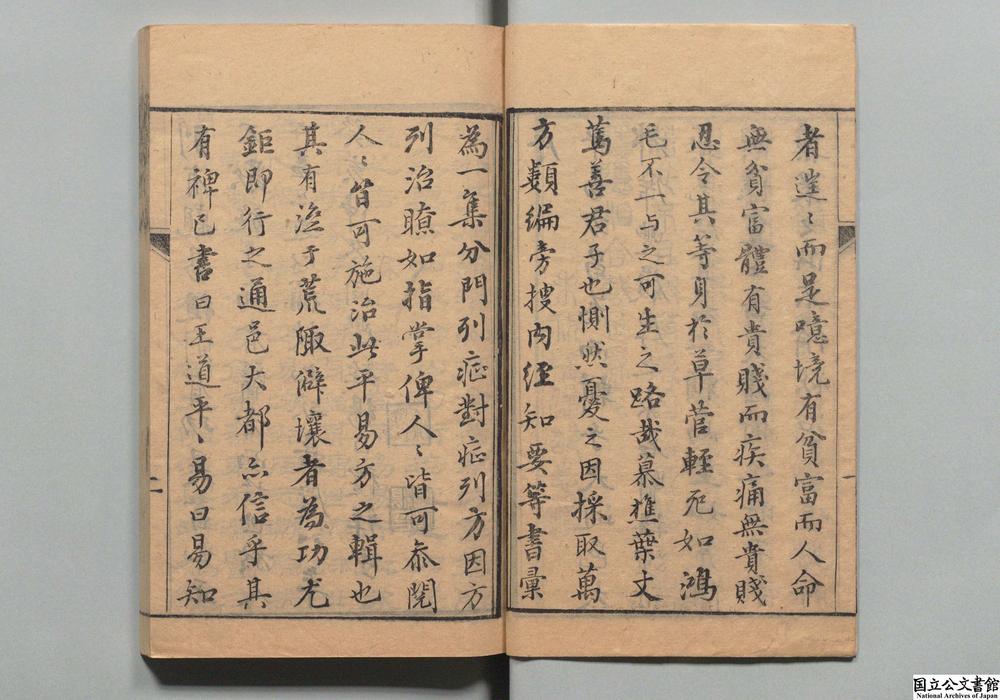 者蓬〻而是噫境有貧富而人命
無貧富體有貴賤而疾痛無貴賤
忍令其等身於草菅輕死如鴻
毛不一与之可生之路哉慕樵葉丈
篤善君子也惻然憂之因採取萬
方類編旁搜内經知要等書彙
為一集分門列症對症列方因方
列治瞭如指掌俾人〻皆可叅閱
人〻皆可施治此平易方之輯也
其有流于荒陬僻壤者為功尤
鉅即行之通邑大都亦信乎其
有裨已書曰王道平〻易曰易知
一
二
国立公文書館
National Archives of Japan